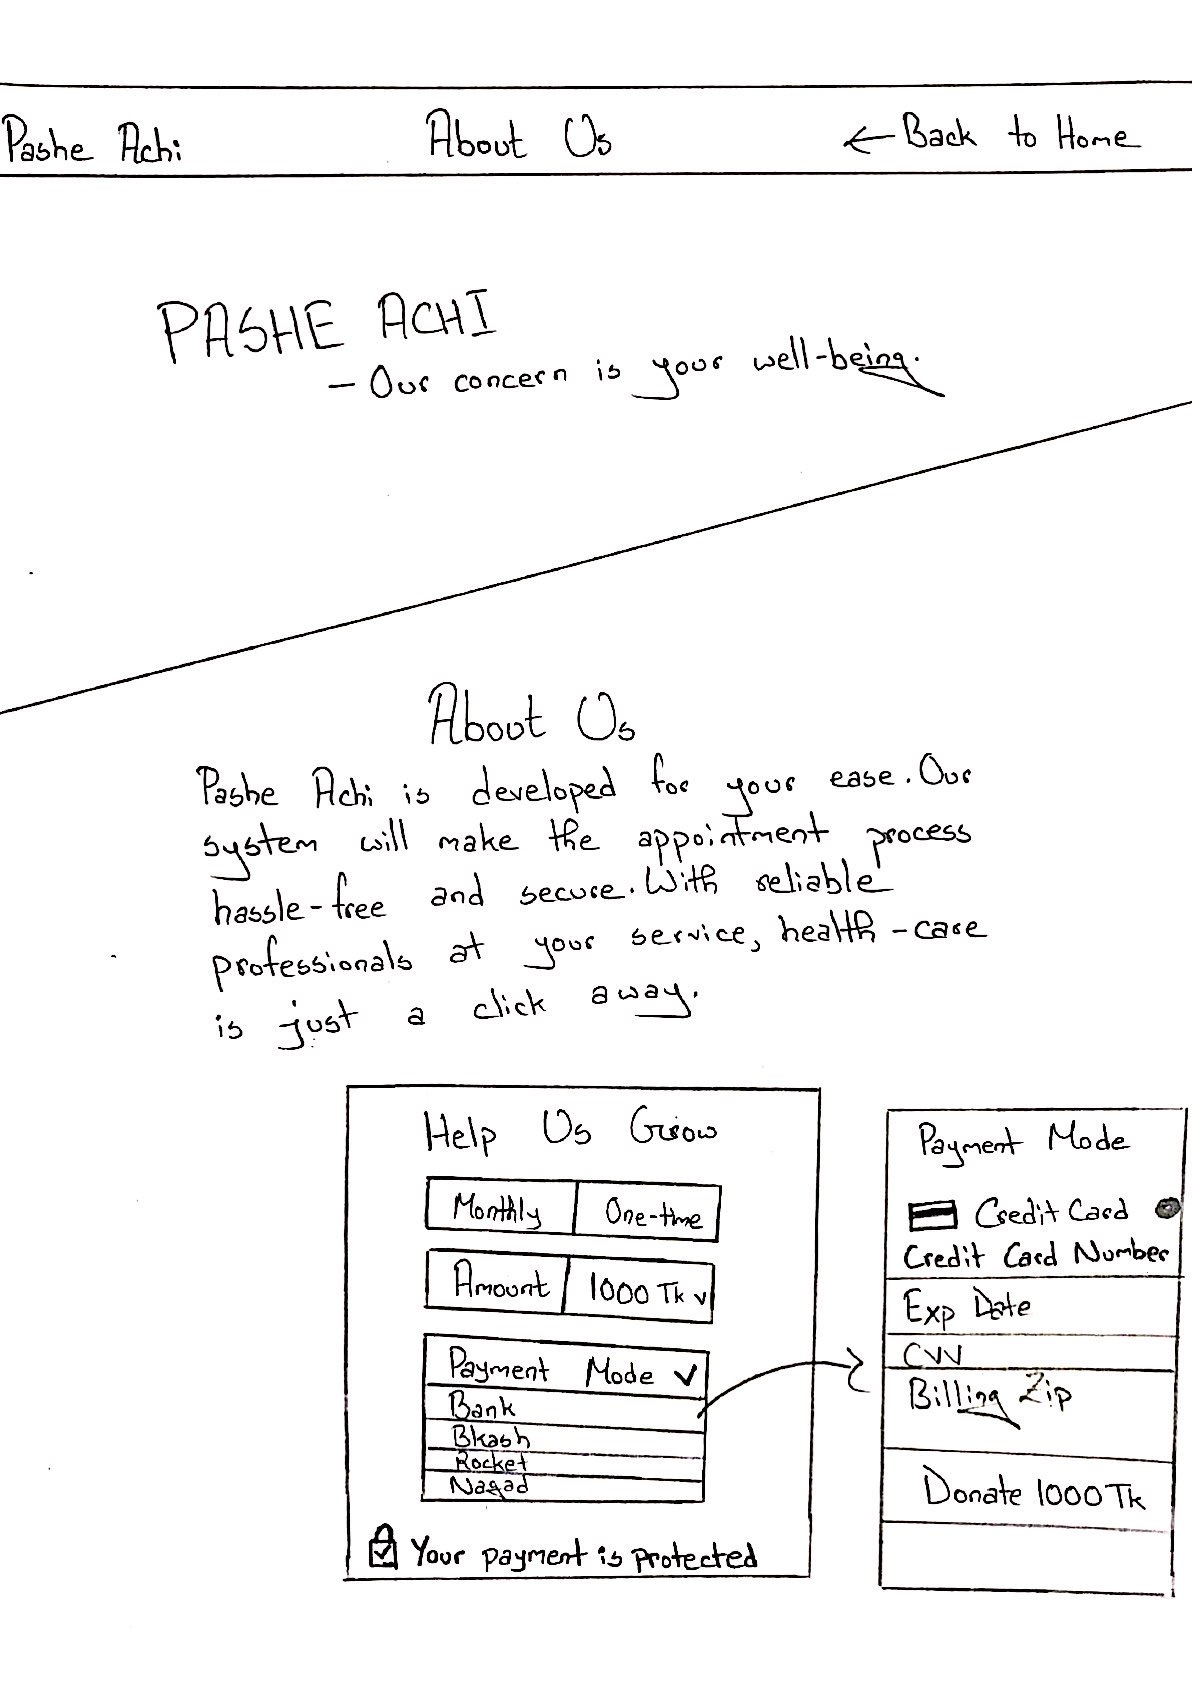 Pashe Achi
About Us
← Back to Home
PASHE ACHI
- Our concern is your well-being.
About Us
Pashe Achi is developed for your ease. Our
system will make the appointment process
hassle-free and secure. With reliable
professionals at your service, health-care
is just a click away.
Help Us Grow
Monthly
One-time
Amount
1000 Tk
Payment Mode
Bank
Bkash
Rocket
Nagad
Your payment is protected
Payment Mode
Credit Card
Credit Card Number
Exp Date
CVV
Billing Zip
Donate 1000 Tk